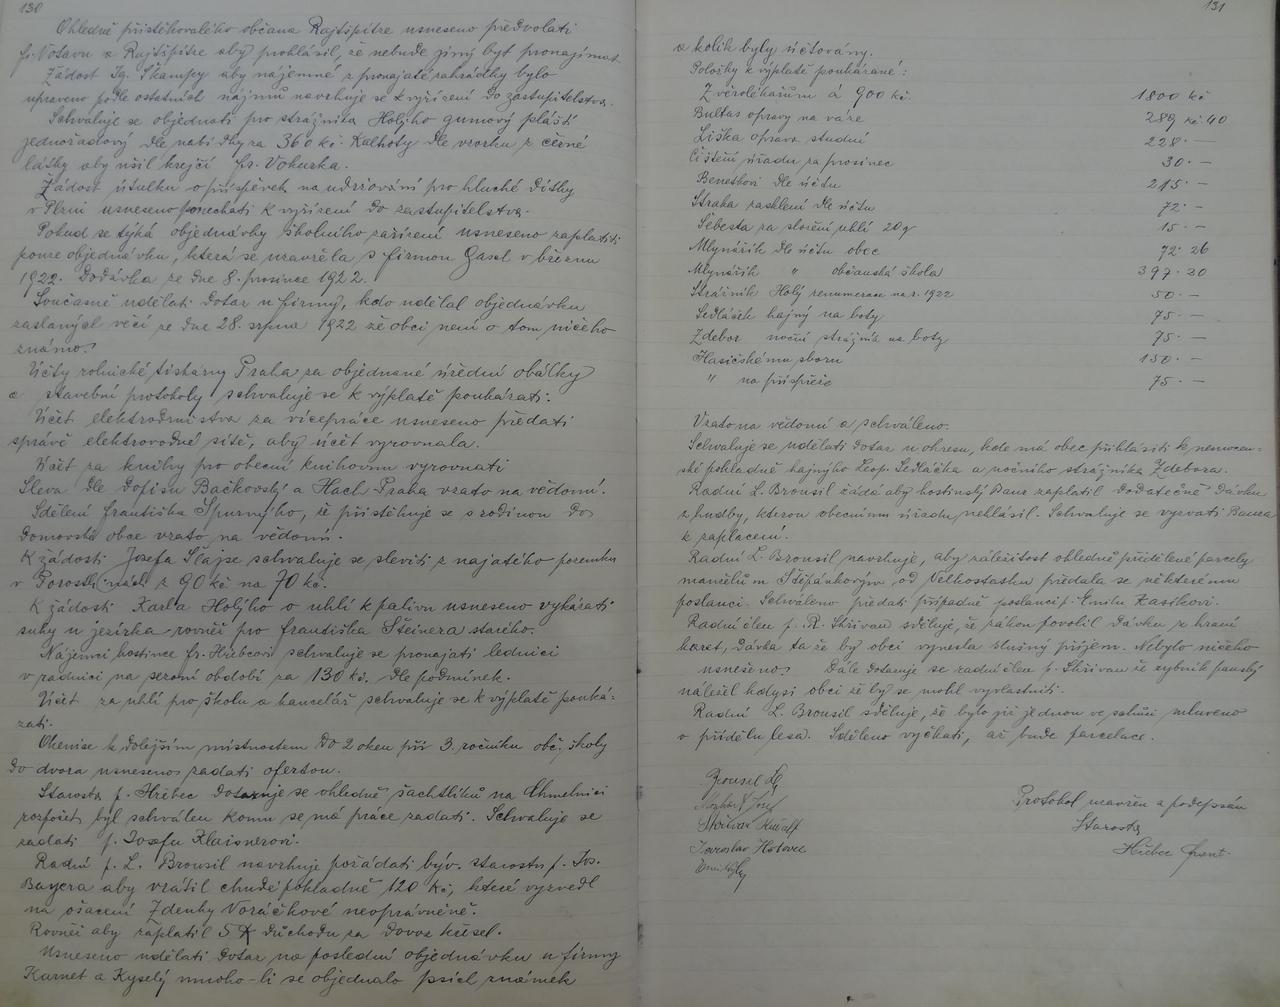 130
Ohledně přistěhovalého občana Rajtšpitze usneseno předvolati
fr. Votavu a Rajtšpitze aby prohlásil, že nebude jiný byt pronajímat.
Žádost Ig. Škampy aby nájemné z pronajaté zahrádky bylo
upraveno podle ostatních nájmů navrhuje se k vyřízení do zastupitelstva.
Schvaluje se objednati pro strážníka Holýho gumový plášť
jednořadový dle nabídky za 360 kč. Kalhoty dle vzorku z černé
látky aby ušil krejčí fr. Vokurka.
Žádost útulku o příspěvek na udržování pro hluché dítky
v Plzni usneseno ponechati k vyřízení do zastupitelstva.
Pokud se týká objednávky školního zařízení usneseno zaplatiti
pouze objednávku, která se uzavřela s firmou Gasel v březnu
1922. Dodávka ze dne 8. prosince 1922.
Současně udělati dotaz u firmy, kdo udělal objednávku
zaslaných věcí ze dne 28. srpna 1922 že obci není o tom ničeho
známo.
Účty rolnické tiskárny Praha za objednané úřední obálky
a stavební protokoly schvaluje se k výplatě poukázati.
Účet elektrodružstva za vícepráce usneseno předati
správě elektrovodné sítě, aby účet vyrovnala.
Účet za knihy pro obecní knihovnu vyrovnati
Sleva dle dopisu Bačkovský a Hach Praha vzato na vědomí.
Sdělení františka Spurnýho, že přistěhuje se s rodinou do
Domovské obce vzato na vědomí.
K žádosti Josefa Šlajse schvaluje se sleviti z najatého pozemku
v z 90 kč na 70 kč.
K žádosti Karla Holýho o uhlí k palivu usneseno vykázati
suky u jezírka rovněž pro františka Šteinera starého.
Nájemci hostince fr. Hřebcovi schvaluje se pronajati lednici
v radnici na sezoní období za 130 kč. dle podmínek.
Účet za uhlí pro školu a kancelář schvaluje se k výplatě pouká-
zati.
Okenice k dolejším místnostem do 2 oken při 3. ročníku obč. školy
do dvora usneseno zadati ofertou.
Starosta p. Hřebec dotazuje se ohledně šachtlíků na Chmelnici
rozpočet byl schválen komu se má práce zadati. Schvaluje se
zadati p. Josefu Klaisnerovi.
Radní p. L. Brousil navrhuje požádati býv. starostu p. Jos.
Bayera aby vrátil chudé pokladně 120 Kč, které vyzvedl
na ošacení Zdenky Voráčkové neoprávněně.
Rovněž aby zaplatil 5 důchodu za dovoz křesel.
Usneseno udělati dotaz na poslední objednávku u firmy
Karnet a Kyselý mnoho-li se objednalo psích známek
131
a kolik byly účtovány.
Položky k výplatě poukázané:
Zvěrolékařům á 900 kč. 1800 kč
Bultas opravy na váze 289 kč 40
Liška oprava studní 228.—
Čištění úřadu za prosinec 30.—
Benešovi dle účtu 215.—
Straka zasklení dle účtu 72.—
Šebesta za složení uhlí 20q 15.—
Mlynářík dle účtu obec 72.26
Mlynářík " občanská škola 397.20
Strážník Holý renumerace na r. 1922 50.—
Sedláček hajný na boty 75.—
Zdebor noční strážník na boty 75.—
Hasičskému sboru 150.—
" na přípřeže 75.—
Vzato na vědomí a schváleno.
Schvaluje se udělati dotaz u okresu, kde má obec přihlásiti k nemocen-
ské pokladně hajnýho Leop. Sedláčka a nočního strážníka Zdebora.
Radní L. Brousil žádá aby hostinský Baur zaplatil dodatečně dávku
z hudby, kterou obecnímu úřadu nehlásil. Schvaluje se vyzvati Baura
k zaplacení.
Radní L. Brousil navrhuje, aby záležitost ohledně přidělené parcely
manželům Štěpánkovým od Velkostatku předala se některému
poslanci. Schváleno předati případně poslanci p. Emilu Zasikovi.
Radní člen p. R. Skřivan sděluje, že zákon povolil dávku z hraní
karet, dávka ta že by obci vynesla slušný příjem. Nebylo ničeho
usneseno. Dále dotazuje se radní člen p. Skřivan že rybník panský
náležel kdysi obci že by se mohl vyvlastniti.
Radní L. Brousil sděluje, že bylo již jednou ve schůzi mluveno
o přídělu lesa. Sděleno vyčkati, až bude parcelace.
Brousil L.
Josef
Skřivan Rudolf
Jaroslav Hotovec
Protokol uzavřen a podepsán
Starosta
Hřebec Frant.